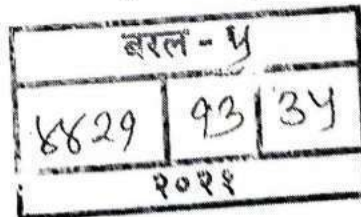 बरल - ५
४४२१ १३ ३५
२०२१